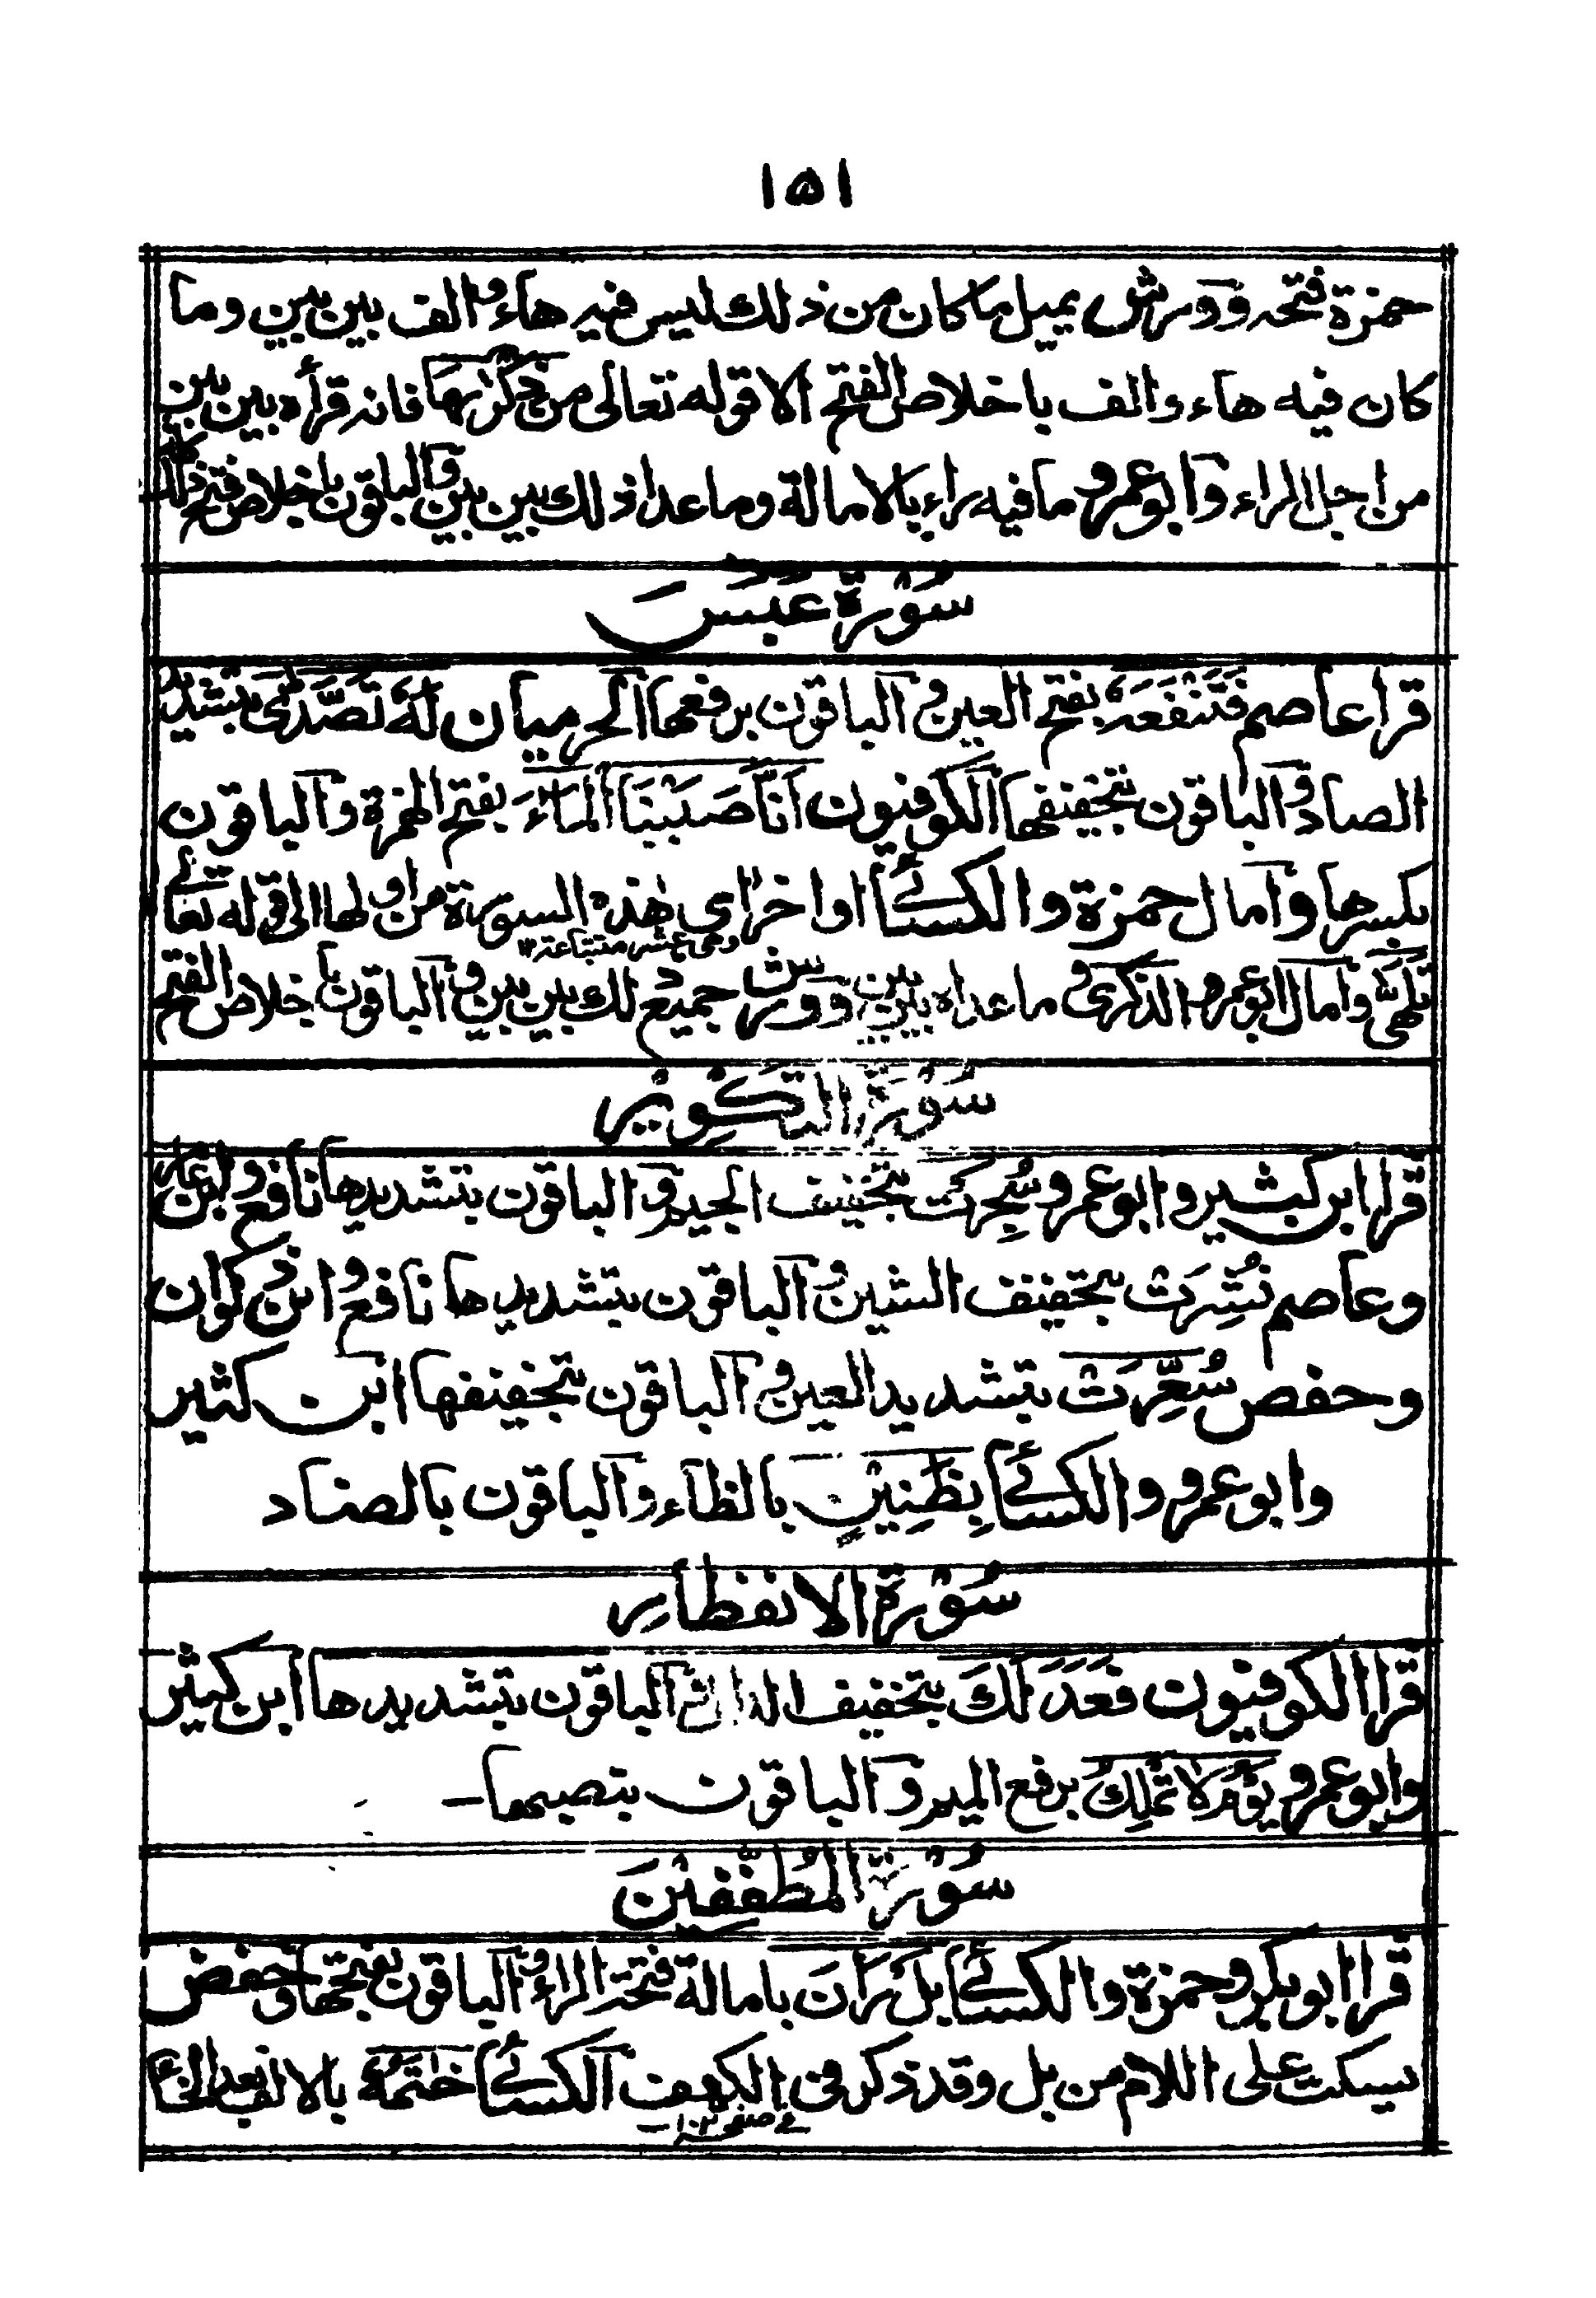 ١٥١
حمزة فتحه وورش يميل ما كان من ذلك ليس فيه هاء والف بين بين وما
كان فيه هاء والف باخلاص الفتح الا قوله تعالى من ذكرٰىها فانه قرأه بين بين
من اجل الراء وابو عمرو ما فيه راء بالامالة وما عدا ذلك بين بين والباقون باخلاص فتح ذلك كله
سُوْرَة عَبَسَ
قرأ عاصم فَتَنْفَعَهُ بفتح العين والباقون برفعها الحرميان لَهٗ تَصَّدّٰى بتشديد
الصاد والباقون بتخفيفها الكوفيون اَنَّا صَبَبْنَا الْمَاءَ بفتح الهمزة والباقون
بكسرها وامال حمزة والكسائي اواخر اٰى هٰذه السورة من اولها الى قوله تعالى
وهى عشر متتابعة ١٢
تَلَهّٰى وامال ابو عمرو الذكرى وما عداه بين بين وورش جميع ذلك بين بين والباقون باخلاص الفتح
سُوْرَة التَّكْوِيْر
قرا ابن كثير وابو عمرو سُجِرَتْ بتخفيف الجيم والباقون بتشديدها نافع وابن عامر
وعاصم نُشِرَتْ بتخفيف الشين والباقون بتشديدها نافع وابن ذكوان
وحفص سُعِّرَتْ بتشديد العين والباقون بتخفيفها ابن كثير
وابو عمرو والكسائي بِظَنِيْنٍ بالظاء والباقون بالضاد
سُوْرَة الانفطارِ
قرا الكوفيون فَعَدَلَكَ بتخفيف الدال والباقون بتشديدها ابن كثير
وابو عمرو يَوْمُ لَا تَمْلِكُ برفع الميم والباقون بنصبها ـ
سُوْرَة الْمُطَفِّفِيْنَ
قرا ابو بكر وحمزة والكسائي بَلْ رَانَ بامالة فتحة الراء والباقون بفتحها وحفص
يسكت على اللام من بل وقد ذكر فى الكهف الكسائي خٰتَمُهٗ بالالف بعد الخاء